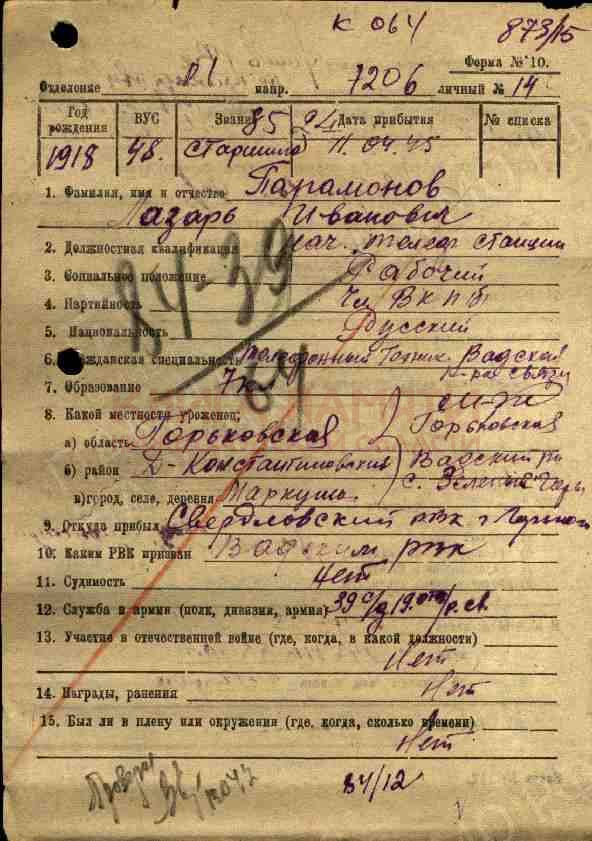 К 064 873/15
Форма № 10.
Отделение 21 мапр. 7206 личный № 14
Год рождения ВУС Звание 85 Дата прибытия № списка
1918 48. старшина 11.04.45
1. Фамилия, имя и отчество Парамонов
Лазарь Иванович
2. Должностная квалификация нач. телеф станции
3. Социальное положение Рабочий
4. Партийность Чл ВКПБ
5. Национальность Русский
6. Гражданская специальность телефонный Техник. Вадской
к-ра связи
7. Образование 7 кл
8. Какой местности уроженец; м-ж
а) область Горьковская Горьковская
б) район Д-Константиновский Вадский рн
в) город, село, деревня Маркуша с. Зеленые Горы
9. Откуда прибыл Свердловский рвк г Горького
10. Каким РВК призван Вадским рвк
11. Судимость Нет
12. Служба в армии (полк, дивизия, армия) 39 с/д 19. отд/р. св.
13. Участие в отечественной войне (где, когда, в какой должности)
Нет
14. Награды, ранения Нет
15. Был ли в плену или окружении (где, когда, сколько времени)
Нет
84-39
64
84/12